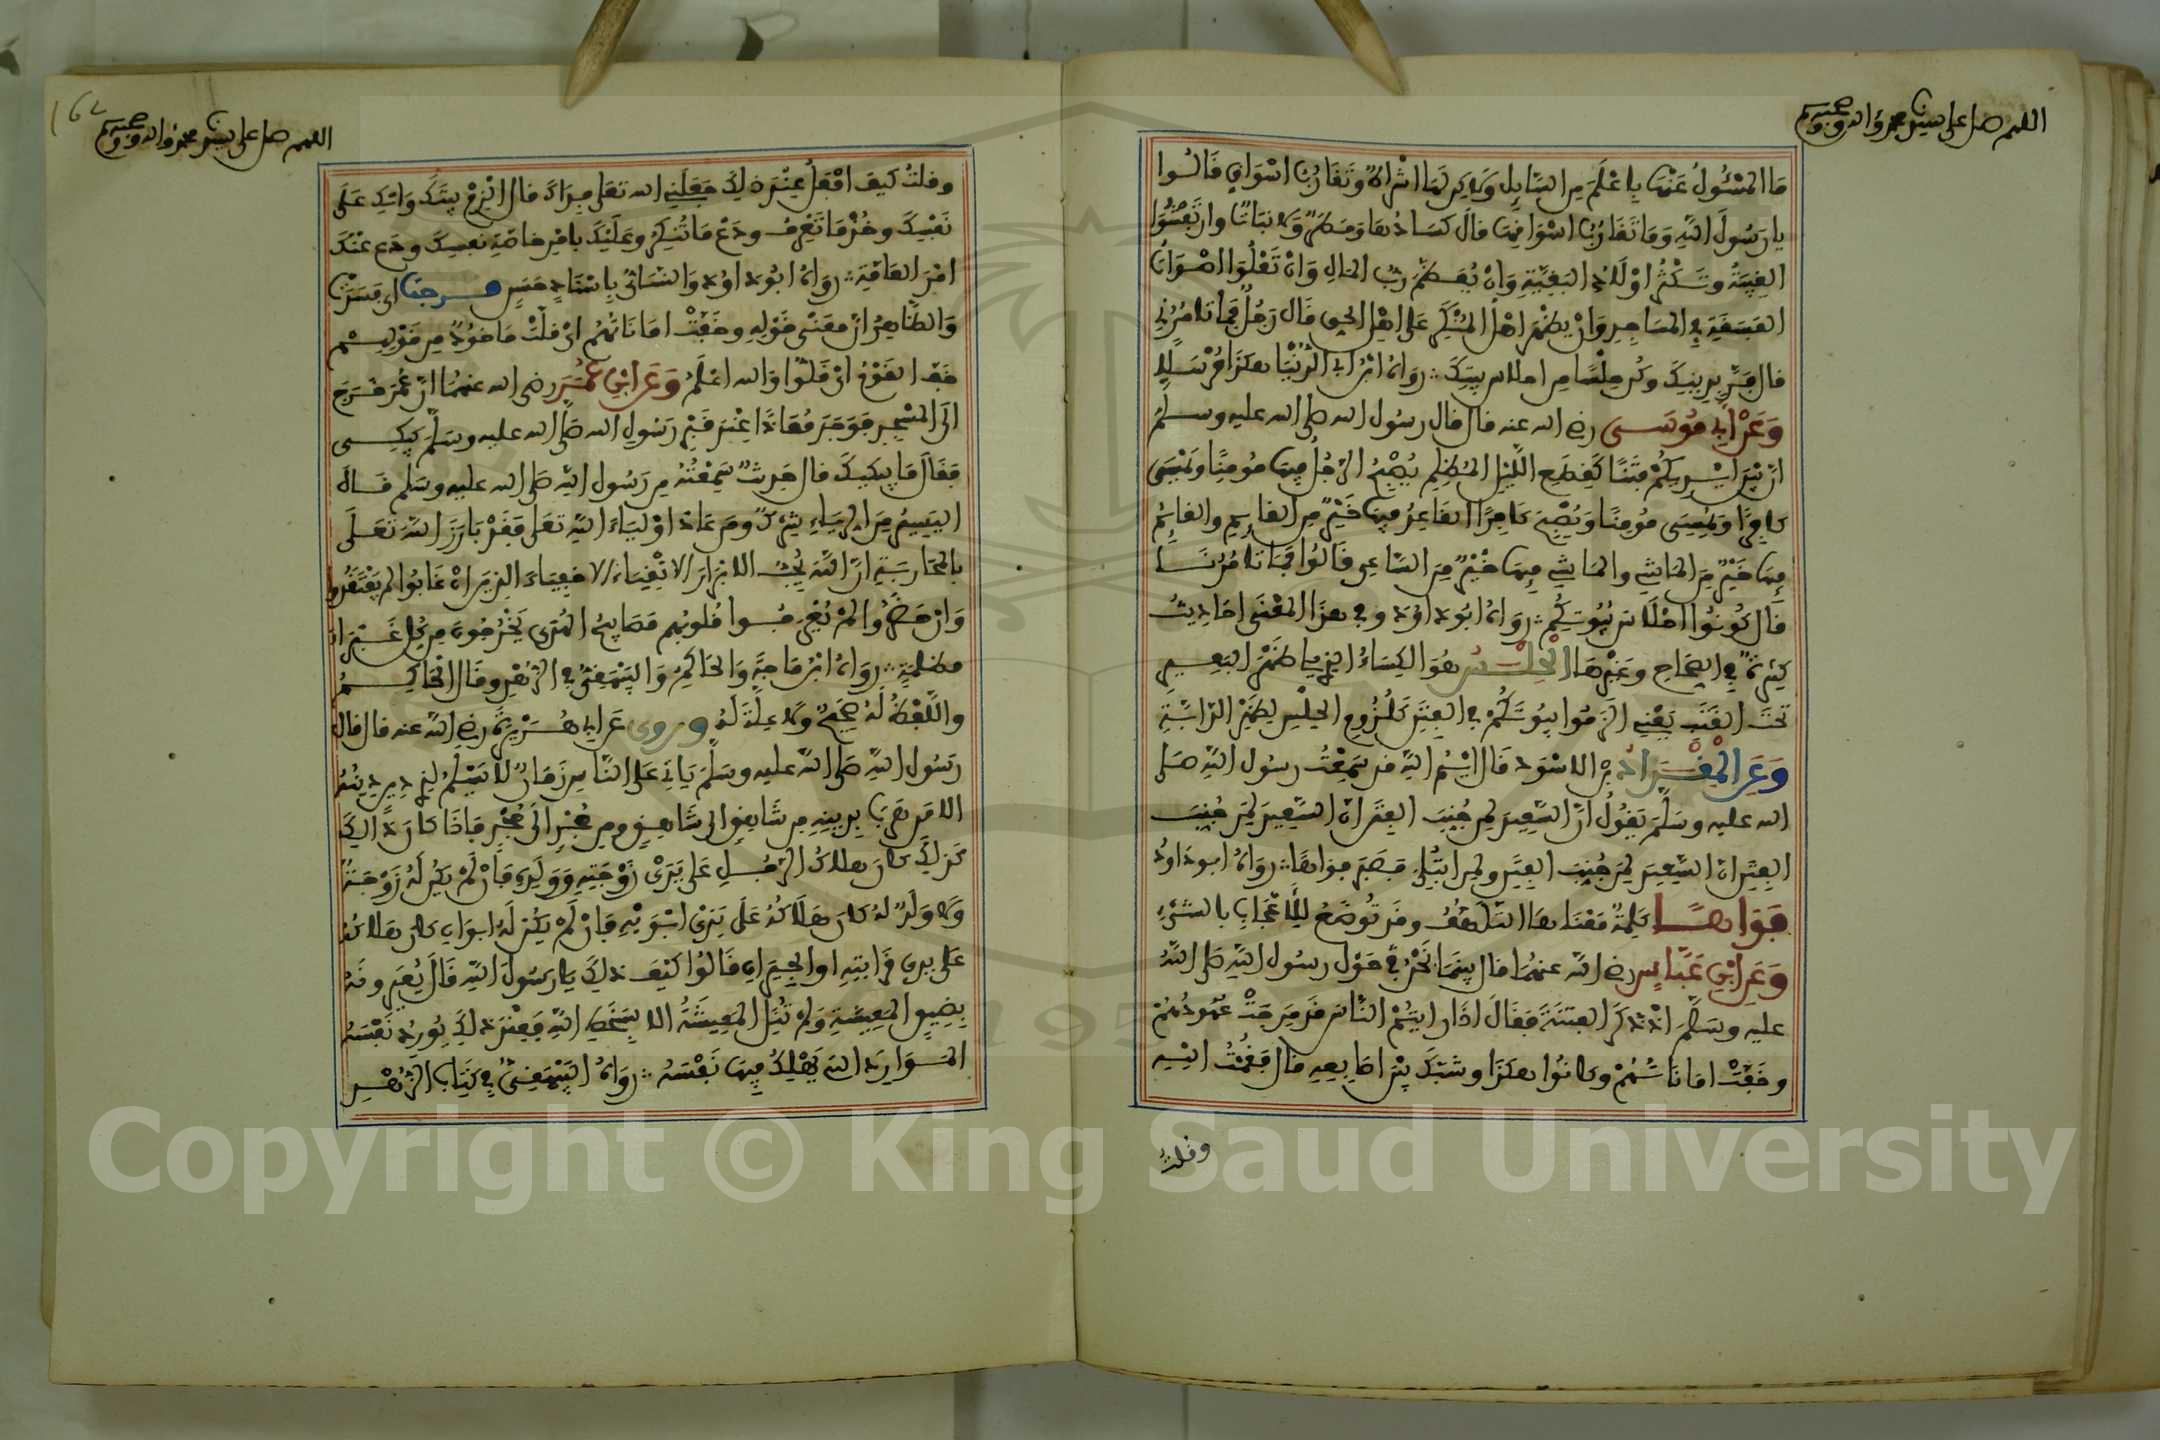 اللهم صل على سيدنا محمد وءاله وصحبه وسلم
ما المسئول عنها باعلم من السايل ولاكن لها اشراط وتقارب اسواق قالوا
يا رسول الله وما تقارب اسواقها قال كسادها ومطر ولا نبات وان تفشوا
الغيبة وتكثر اولاد البغية وان يعظم رب المال وان تعلوا اصوات
الفسقة في المساجد وان يظهر اهل المنكر على اهل الحق قال رجل فما تامرني
قال فر بدينك وكن حلسا من احلاس بيتك رواه ابن ابي الدنيا هكذا مرسلا
وعن أبي موسى رضي الله عنه قال قال رسول الله صلى الله عليه وسلم
ان بين ايديكم فتنا كقطع الليل المظلم يصبح الرجل فيها مومنا ويمسى
كافرا ويمسى مومنا ويصبح كافرا القاعد فيها خير من القايم والقايم
فيها خير من الماشي والماشي فيها خير من الساعي قالوا فما تامرنا
قال كونوا احلاس بيوتكم رواه ابو داود وفي هذا المعنى احاديث
كثيرة في الصحاح وغيرها الحلس هو الكساء الذي يلي ظهر البعير
تحت القتب يعني الزموا بيوتكم في الفتن كلزوم الحلس لظهر الدابة
وعن المقداد بن الاسود قال ايم الله قد سمعت رسول الله صلى
الله عليه وسلم يقول ان السعيد لمن جنب الفتن ان السعيد لمن جنب
الفتن ان السعيد لمن جنب الفتن ولمن ابتلي فصبر فواها رواه ابو داود
فواها كلمة معناها التلهف وقد توضع للاعجاب بالشيء
وعن ابن عباس رضي الله عنهما قال بينما نحن في حول رسول الله صلى الله
عليه وسلم اذ ذكر الفتنة فقال اذا رايتم الناس قد مرجت عهودهم
وخفت اماناتهم وكانوا هكذا وشبك بين اصابعه قال فقمت اليه
وقلت
اللهم صل على سيدنا محمد وءاله وصحبه وسلم
وقلت كيف افعل عند ذلك جعلني الله تعلى فداك قال الزم بيتك وابك على
نفسك وخذ ما تعرف ودع ما تنكر وعليك بامر خاصة نفسك ودع عنك
امر العامة رواه ابو داود والنسائي باسناد حسن مرجت اي فسدت
والظاهر ان معنى قوله وخفت اماناتهم اي قلت ماخوذ من قولهم
خف القوم اي قلوا والله اعلم وعن ابن عمر رضى الله عنهما ان عمر خرج
الى المسجد فوجد معاذا عند قبر رسول الله صلى الله عليه وسلم يبكى
فقال ما يبكيك قال حديث سمعته من رسول الله صلى الله عليه وسلم قال
اليسير من الرياء شرك ومن عادى اولياء الله تعلى فقد بارز الله تعلى
بالمحاربة ان الله يحب الابرار الاتقياء الاخفياء الذين ان غابوا لم يفتقدوا
وان حضروا لم يعرفوا قلوبهم مصابيح الهدى يخرجون من كل غبراء
مظلمة رواه ابن ماجة والحاكم والبيهقي في الزهد وقال الحاكم
واللفظ له صحيح ولا علة له وروى عن ابي هريرة رضي الله عنه قال قال
رسول الله صلى الله عليه وسلم ياتي على الناس زمان لا يسلم لذي دين دينه
الا من هرب بدينه من شاهق الى شاهق ومن جحر الى جحر فاذا كان ذالك
كذلك كان هلاك الرجل على يدي زوجته وولده فان لم يكن له زوجة
ولا ولد له كان هلاكه على يدي ابويه فان لم يكن له ابوان كان هلاكه
على يدي قرابته او الجيران قالوا كيف ذلك يا رسول الله قال يعيرونه
بضيق المعيشة ولم تنل المعيشة الا بسخط الله فعند ذلك يورد نفسه
الموارد التي يهلك فيها نفسه رواه البيهقي في كتاب الزهد